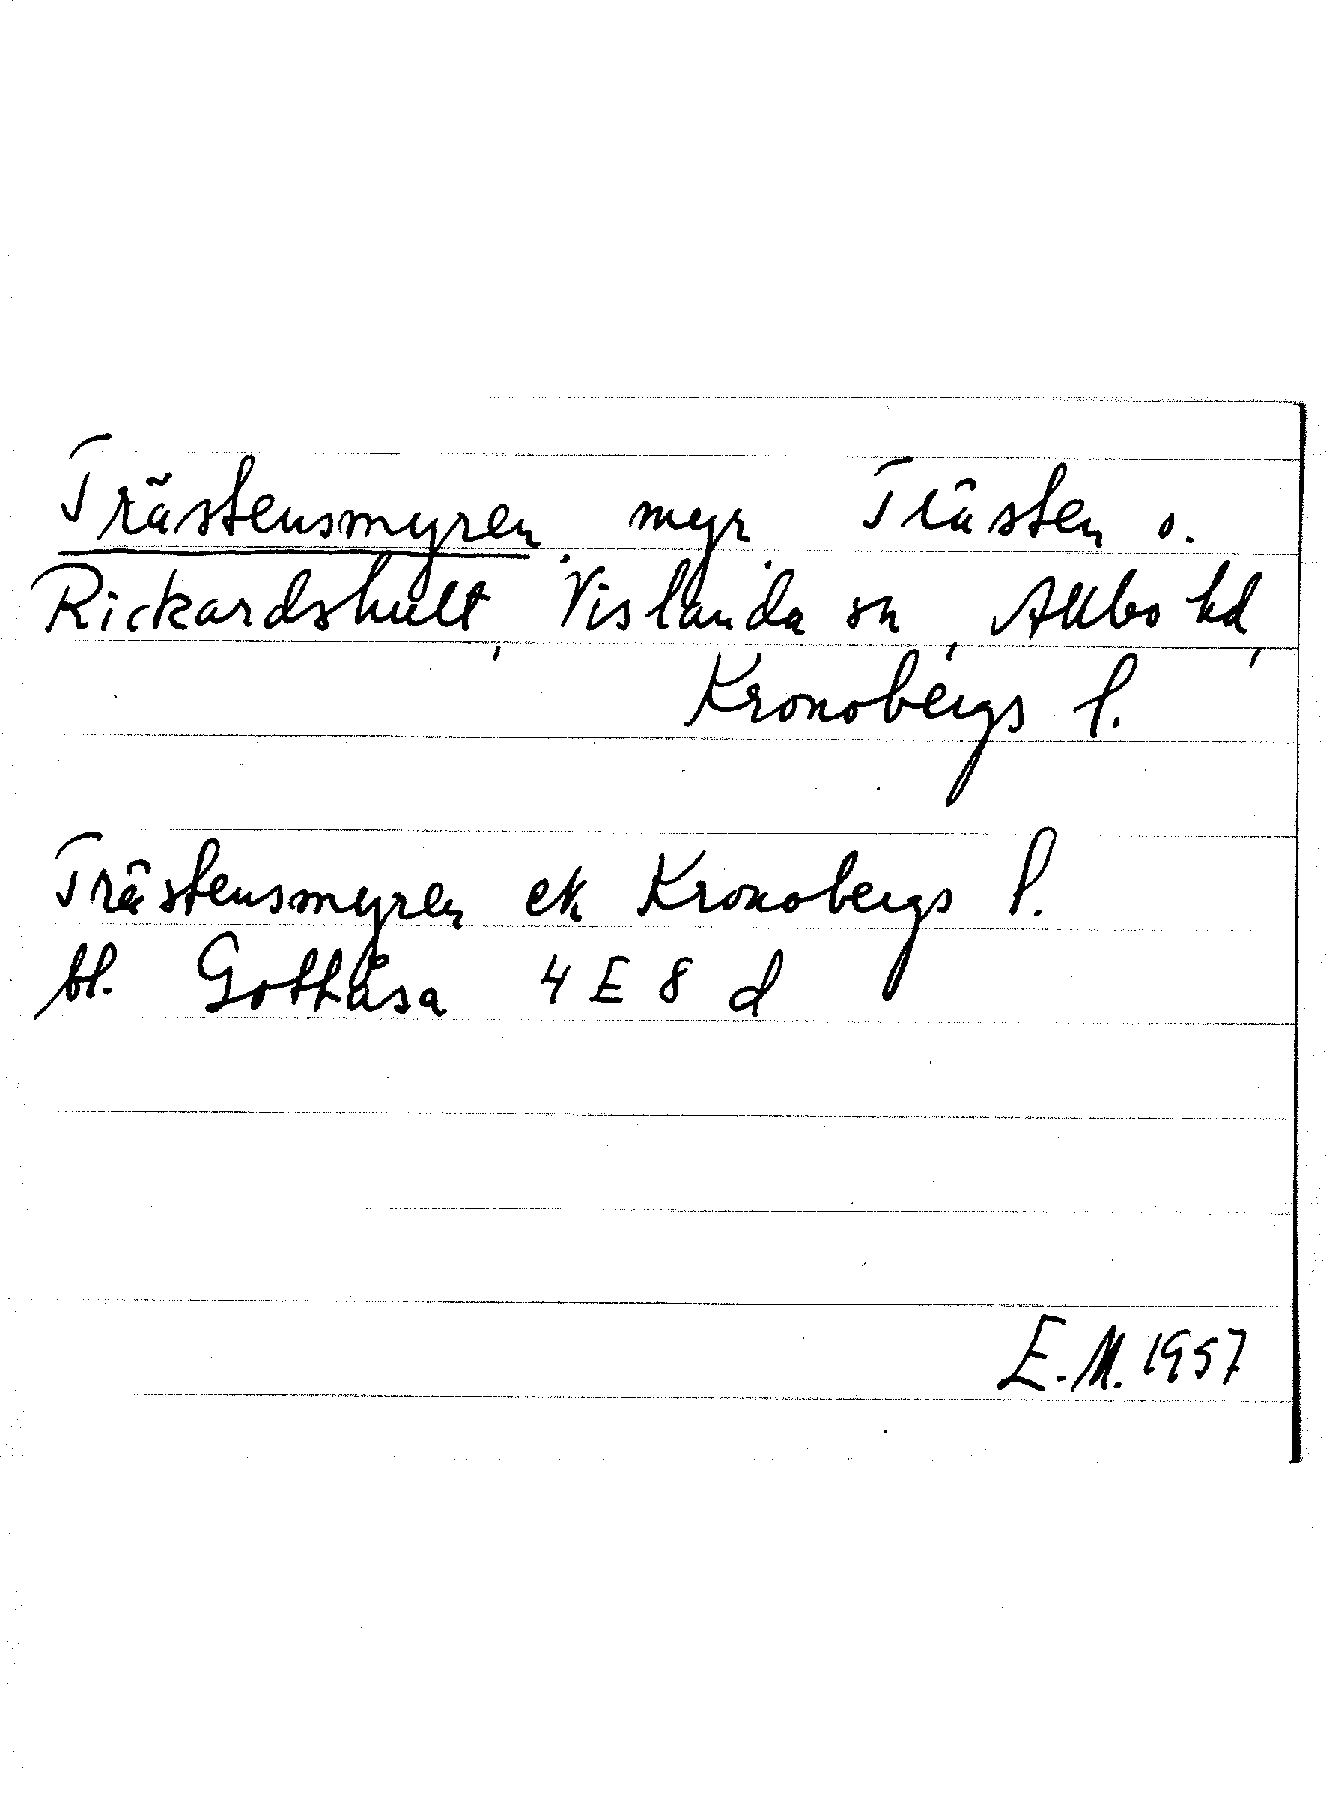 Trästensmyren, myr, Trästen o.
Rickardshult, Vislanda sn, Allbo hd,
Kronobergs l.
Trästensmyren ek Kronobergs l.
bl. Gottåsa 4 E 8 d
E.M. 1957